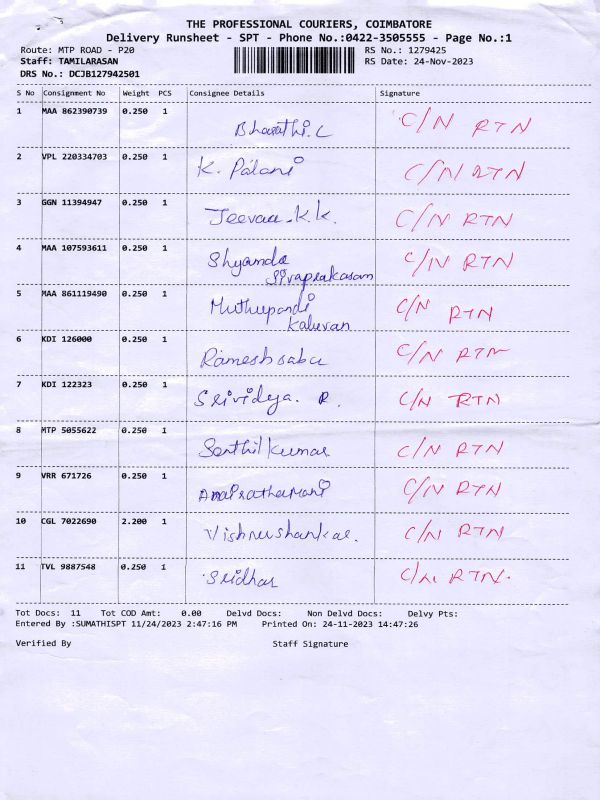 THE PROFESSIONAL COURIERS, COIMBATORE
Delivery Runsheet - SPT - Phone No.:0422-3505555 - Page No.:1
Route: MTP ROAD - P20 RS No.: 1279425
Staff: TAMILARASAN RS Date: 24-Nov-2023
DRS No.: DCJB127942501
S No Consignment No Weight PCS Consignee Details Signature
1 MAA 862390739 0.250 1 Bharathi.C C/N RTN
2 VPL 220334703 0.250 1 K. Palani C/N RTN
3 GGN 11394947 0.250 1 Jeevaa.K.K. C/N RTN
4 MAA 107593611 0.250 1 Shyamala C/N RTN
Sivaprakasam
5 MAA 861119490 0.250 1 Muthupandi C/N RTN
Kaluvan
6 KDI 126000 0.250 1 Rameshbabu C/N RTN
7 KDI 122323 0.250 1 Srividya. R. C/N RTN
8 MTP 5055622 0.250 1 Senthil Kumar C/N RTN
9 VRR 671726 0.250 1 C/N RTN
10 CGL 7022690 2.200 1 Vishnushankar. C/N RTN
11 TVL 9887548 0.250 1 Sridhar C/N RTN.
Tot Docs: 11 Tot COD Amt: 0.00 Delvd Docs: Non Delvd Docs: Delvy Pts:
Entered By :SUMATHISPT 11/24/2023 2:47:16 PM Printed On: 24-11-2023 14:47:26
Verified By Staff Signature